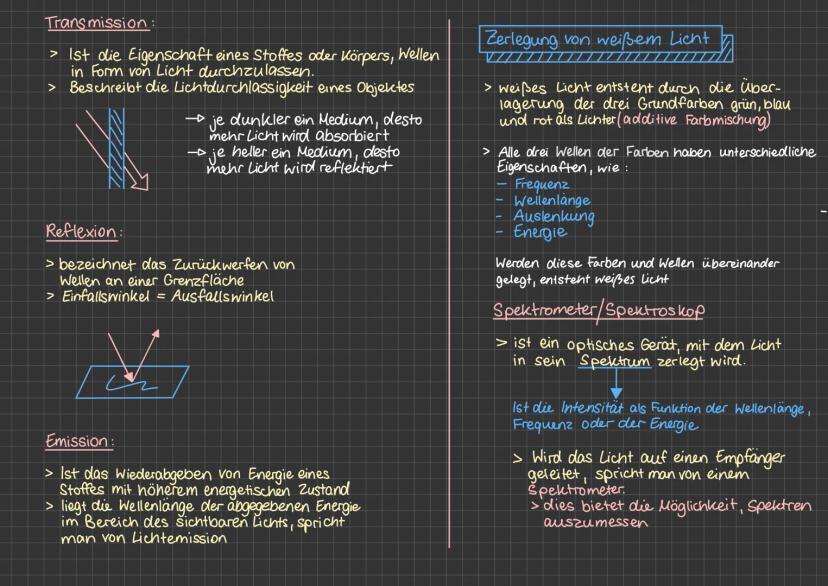 Transmission:
> Ist die Eigenschaft eines Stoffes oder Körpers, Wellen
in Form von Licht durchzulassen.
> Beschreibt die Lichtdurchlässigkeit eines Objektes
→ je dunkler ein Medium, desto
mehr Licht wird absorbiert
→ je heller ein Medium, desto
mehr Licht wird reflektiert
Reflexion:
> bezeichnet das Zurückwerfen von
Wellen an einer Grenzfläche
> Einfallswinkel = Ausfallswinkel
Emission:
> Ist das Wiederabgeben von Energie eines
Stoffes mit höherem energetischen Zustand
> liegt die Wellenlänge der abgegebenen Energie
im Bereich des sichtbaren Lichts, spricht
man von Lichtemission
Zerlegung von weißem Licht
> weißes Licht entsteht durch die Über-
lagerung der drei Grundfarben grün, blau
und rot als Lichter (additive Farbmischung)
> Alle drei Wellen der Farben haben unterschiedliche
Eigenschaften, wie:
- Frequenz
- Wellenlänge
- Auslenkung
- Energie
Werden diese Farben und Wellen übereinander
gelegt, entsteht weißes Licht
Spektrometer/Spektroskop
> ist ein optisches Gerät, mit dem Licht
in sein Spektrum zerlegt wird.
Ist die Intensität als Funktion der Wellenlänge,
Frequenz oder der Energie
> Wird das Licht auf einen Empfänger
geleitet, spricht man von einem
Spektrometer.
> dies bietet die Möglichkeit, Spektren
auszumessen